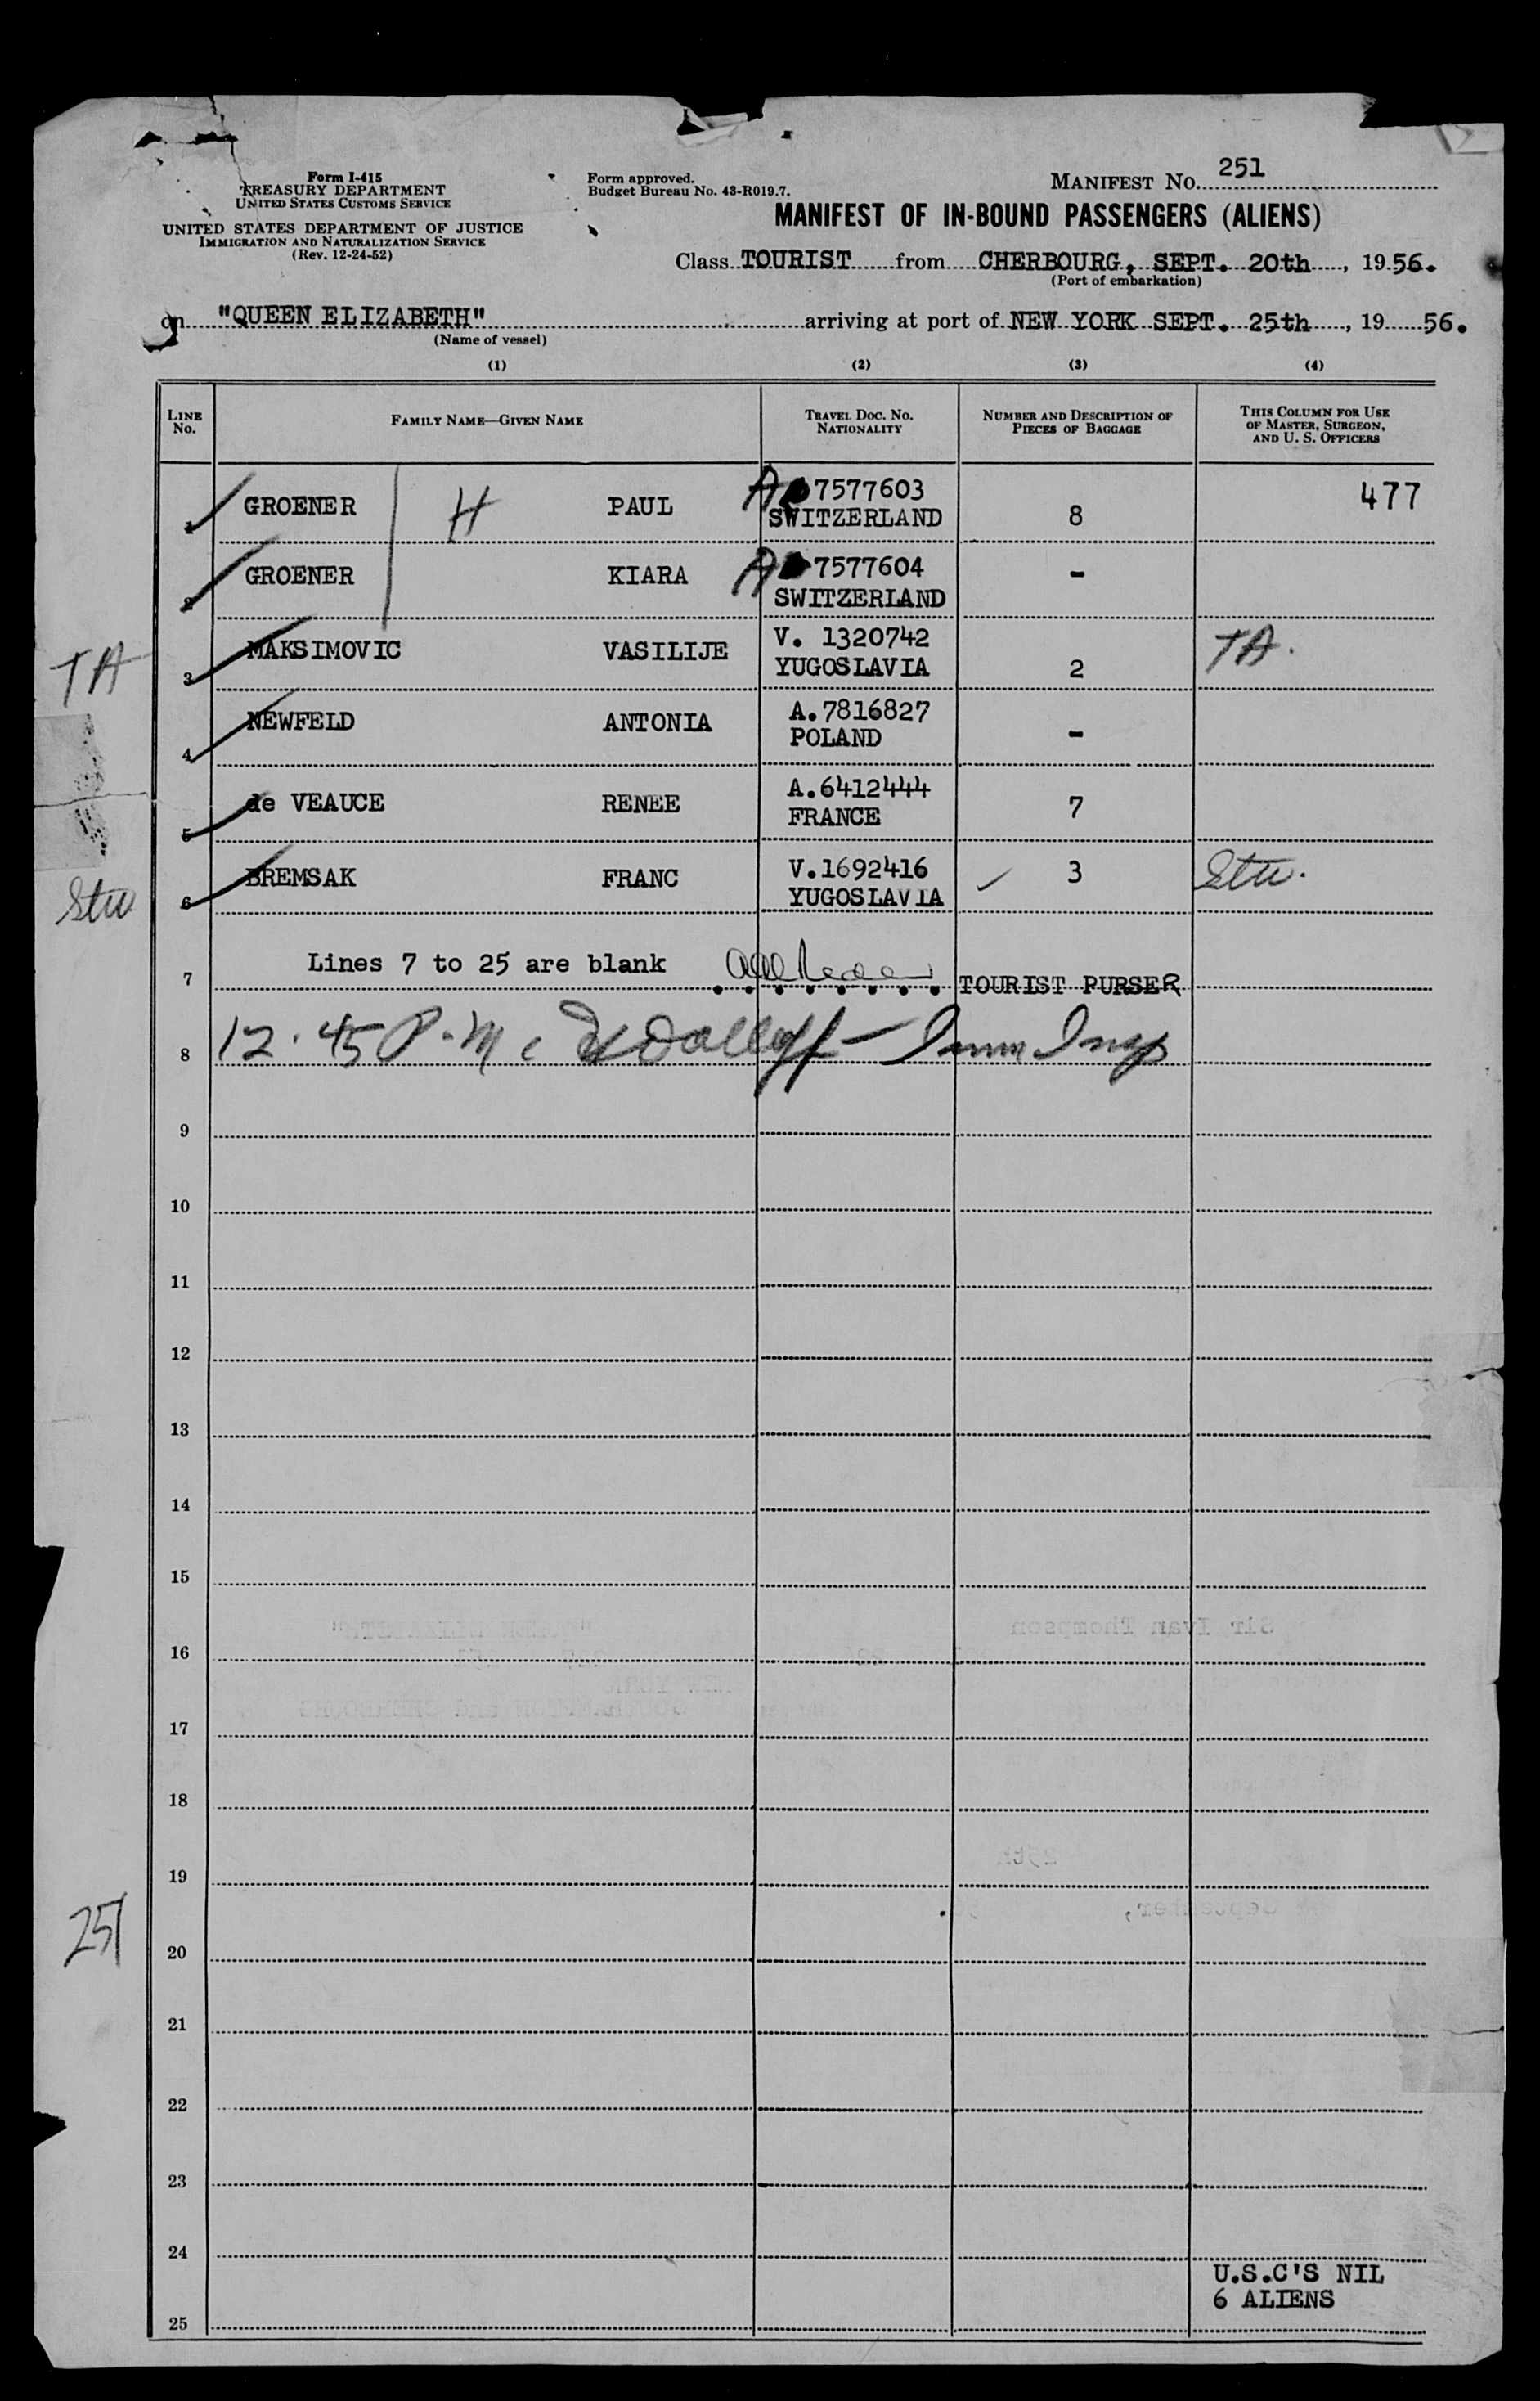 Form I-415
TREASURY DEPARTMENT
UNITED STATES CUSTOMS SERVICE
UNITED STATES DEPARTMENT OF JUSTICE
IMMIGRATION AND NATURALIZATION SERVICE
(Rev. 12-24-52)
Form approved.
Budget Bureau No. 43-R019.7.
MANIFEST NO. 251
MANIFEST OF IN-BOUND PASSENGERS (ALIENS)
Class TOURIST from CHERBOURG, SEPT. 20th, 19 56.
(Port of embarkation)
on "QUEEN ELIZABETH" arriving at port of NEW YORK SEPT. 25th, 19 56.
(Name of vessel)
(1) (2) (3) (4)
LINE NO. FAMILY NAME—GIVEN NAME TRAVEL DOC. NO. NATIONALITY NUMBER AND DESCRIPTION OF PIECES OF BAGGAGE THIS COLUMN FOR USE OF MASTER, SURGEON, AND U. S. OFFICERS
1 GROENER H PAUL A 7577603 SWITZERLAND 8 477
2 GROENER KIARA A 7577604 SWITZERLAND -
TA 3 MAKSIMOVIC VASILIJE V. 1320742 YUGOSLAVIA 2 TA.
4 NEWFELD ANTONIA A.7816827 POLAND -
5 de VEAUCE RENEE A.6412444 FRANCE 7
Stu 6 BREMSAK FRANC V.1692416 YUGOSLAVIA 3 Stu.
7 Lines 7 to 25 are blank TOURIST PURSER
8 12.45 P.M. Imm Insp
9
10
11
12
13
14
15
16
17
18
19
251
20
21
22
23
24
U.S.C'S NIL
6 ALIENS
25